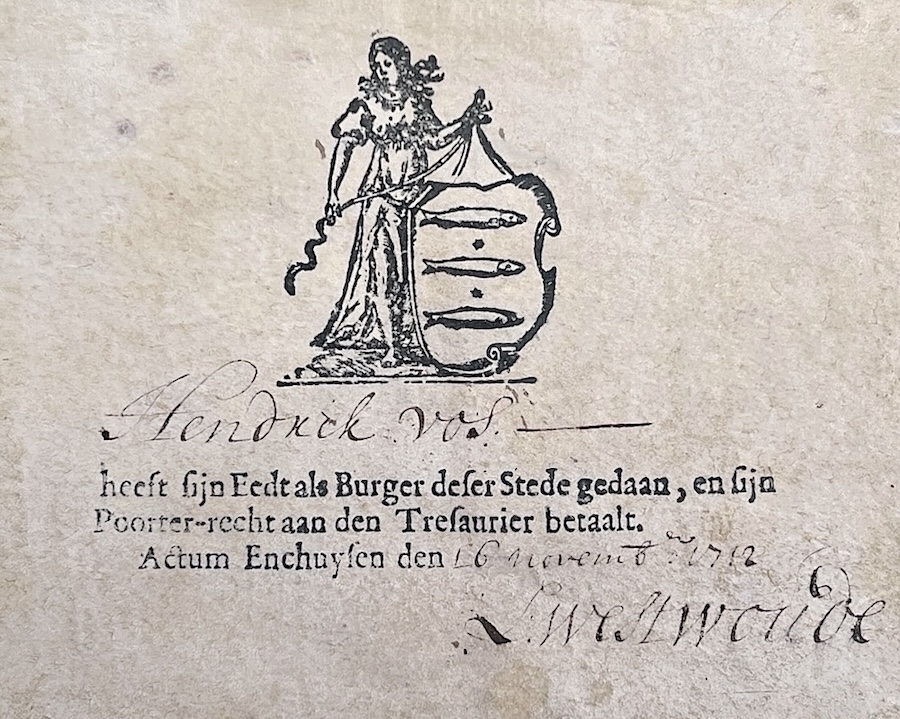 Hendrick vos.
heeft ſijn Eedt als Burger deſer Stede gedaan, en ſijn
Poorter-recht aan den Treſaurier betaalt.
Actum Enchuyſen den 16 novembr 1712
Westwoude